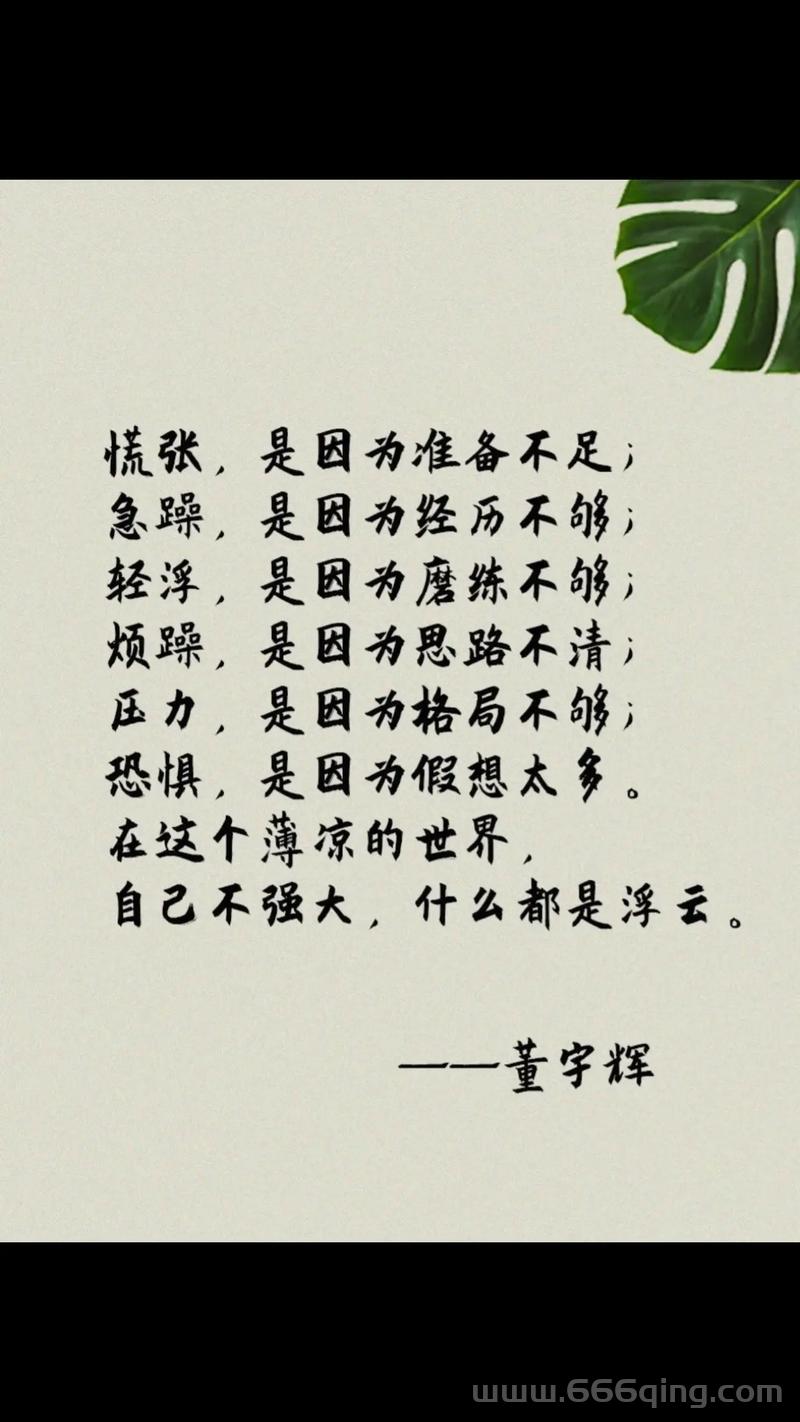 慌张，是因为准备不足；
急躁，是因为经历不够；
轻浮，是因为磨练不够；
烦躁，是因为思路不清；
压力，是因为格局不够；
恐惧，是因为假想太多。
在这个薄凉的世界，
自己不强大，什么都是浮云。
——董宇辉
www.666qing.com